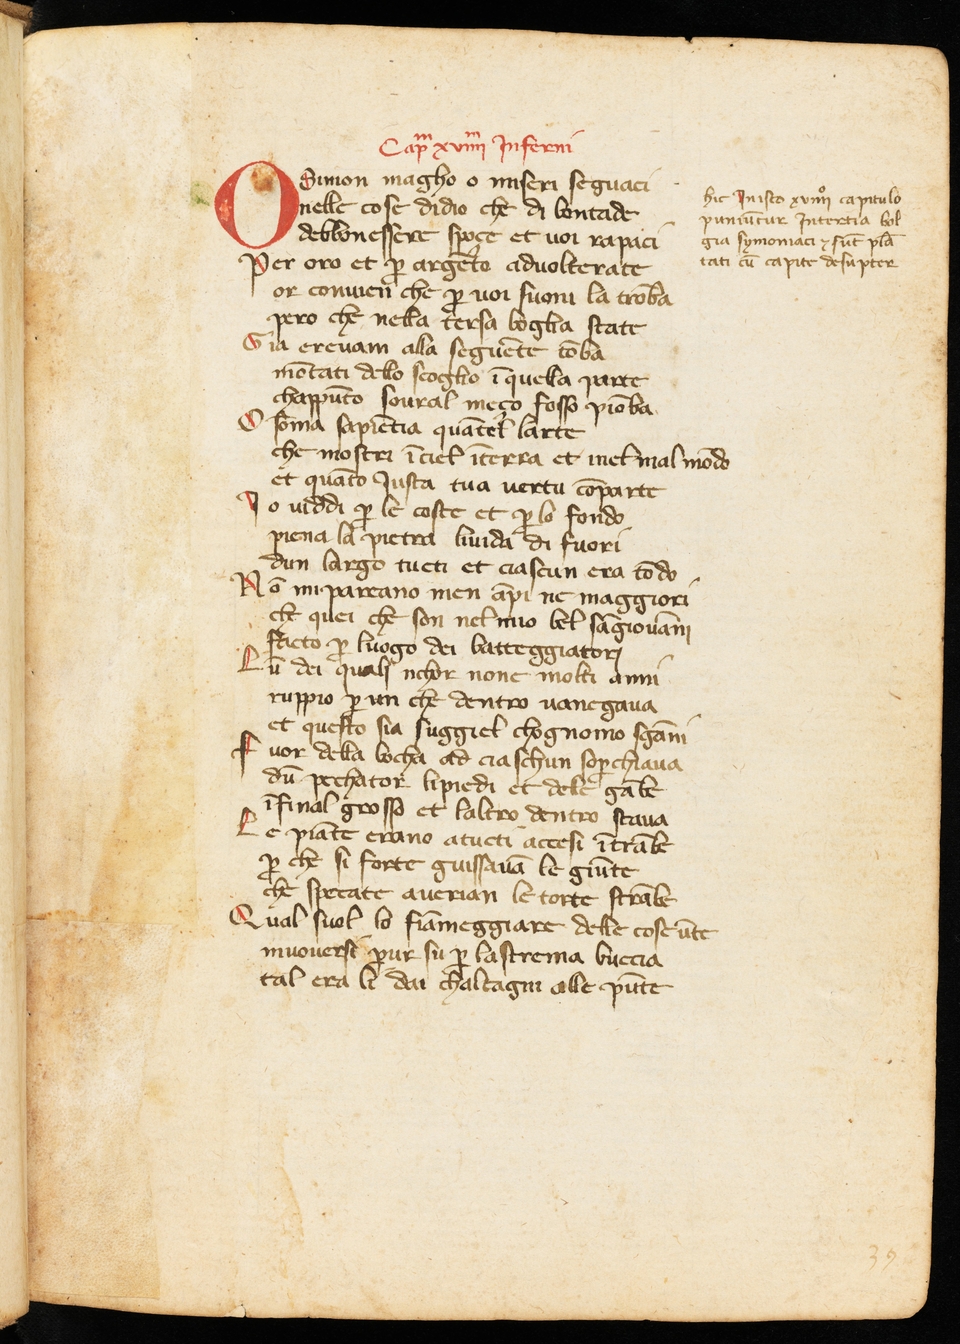 Capm xviiiim Inferni
O Simon magho o miseri seguaci
nelle cose didio che di bontade
debbonessere spoçe et uoi rapaci
Per oro et p̲ argēto aduolterate
or conuien che p̲ uoi suoni la trōba
pero che nella tersa boglia state
Gia erevam alla seguēte tōba
mōtati dello scoglio ī quella parte
chappūto soural meço fosso piōba
O sōma sapiētia quātel larte
che mostri ī ciel īterra et inel mal mōdo
et quāto Iusta tua uertu cōparte
Io uiddi p̲ le coste et p̲ lo fondo
piena la pietra liuida di fuori
dun largo tucti et ciascun era tōdo
Nō mi pareano men āpi ne maggiori
che quei che son nel mio bel sāgiouāni
facto p̲ luogo dei batteggiatori
Lū dei quali nchor none molti anni
ruppio p̲ un che dentro uanegaua
et questo sia suggiel chognomo sgāni
Fuor della bocha ad ciaschun sop̲chiaua
dū pechator li piedi et dele gābe
īfinal grosso et laltro dentro staua
Le piāte erano atucti accesi ītrābe
p̲ che si forte guissauā le giūte
che specate auerian le torte strābe
Qual suol lo fiāmeggiare delle cose ūte
muouersi pur su p̲ lastrema buccia
tal era li dai chalcagni alle pūte
hic In isto xviiiio capitulo
puniūtur In tertia bol
gia symoniaci et sūt plā
tati cū capite desupter
39